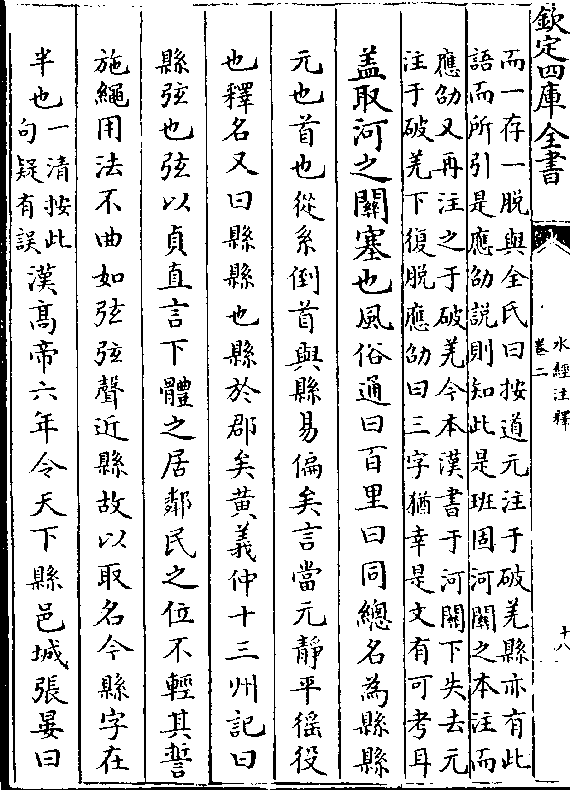 欽定四庫全書
水經注釋
卷二
十八
而一存一脱與全氏曰按道元注于破羌縣亦有此
語而所引是應劭説則知此是班固河關之本注而
應劭又再注之于破羌今本漢書于河關下失去元
注于破羌下復脱應劭曰三字猶幸是文有可考耳
盖取河之關塞也風俗通曰百里曰同總名為縣縣
元也首也從系倒首與縣易偏矣言當元靜平徭役
也釋名又曰縣縣也縣於郡矣黄義仲十三州記曰
縣弦也弦以貞直言下體之居鄰民之位不輕其誓
施繩用法不曲如弦弦聲近縣故以取名今縣字在
半也一清按此
句疑有誤
漢髙帝六年令天下縣邑城張晏曰